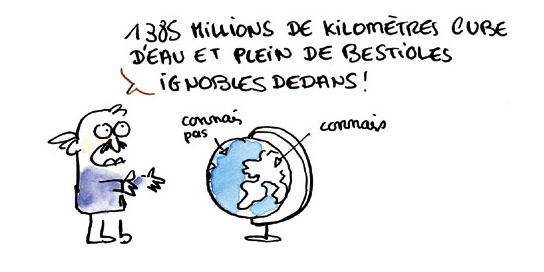 1385 MILLIONS DE KILOMÈTRES CUBE
D'EAU ET PLEIN DE BESTIOLES
IGNOBLES DEDANS!
connais
pas
connais